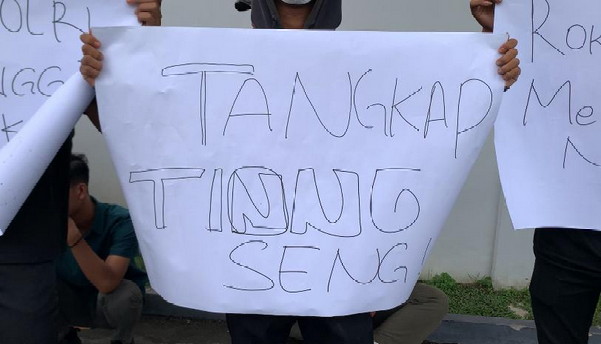 OLRI
NGG
K
TANGKAP
TINNG
SENG!
Rok
Me
N